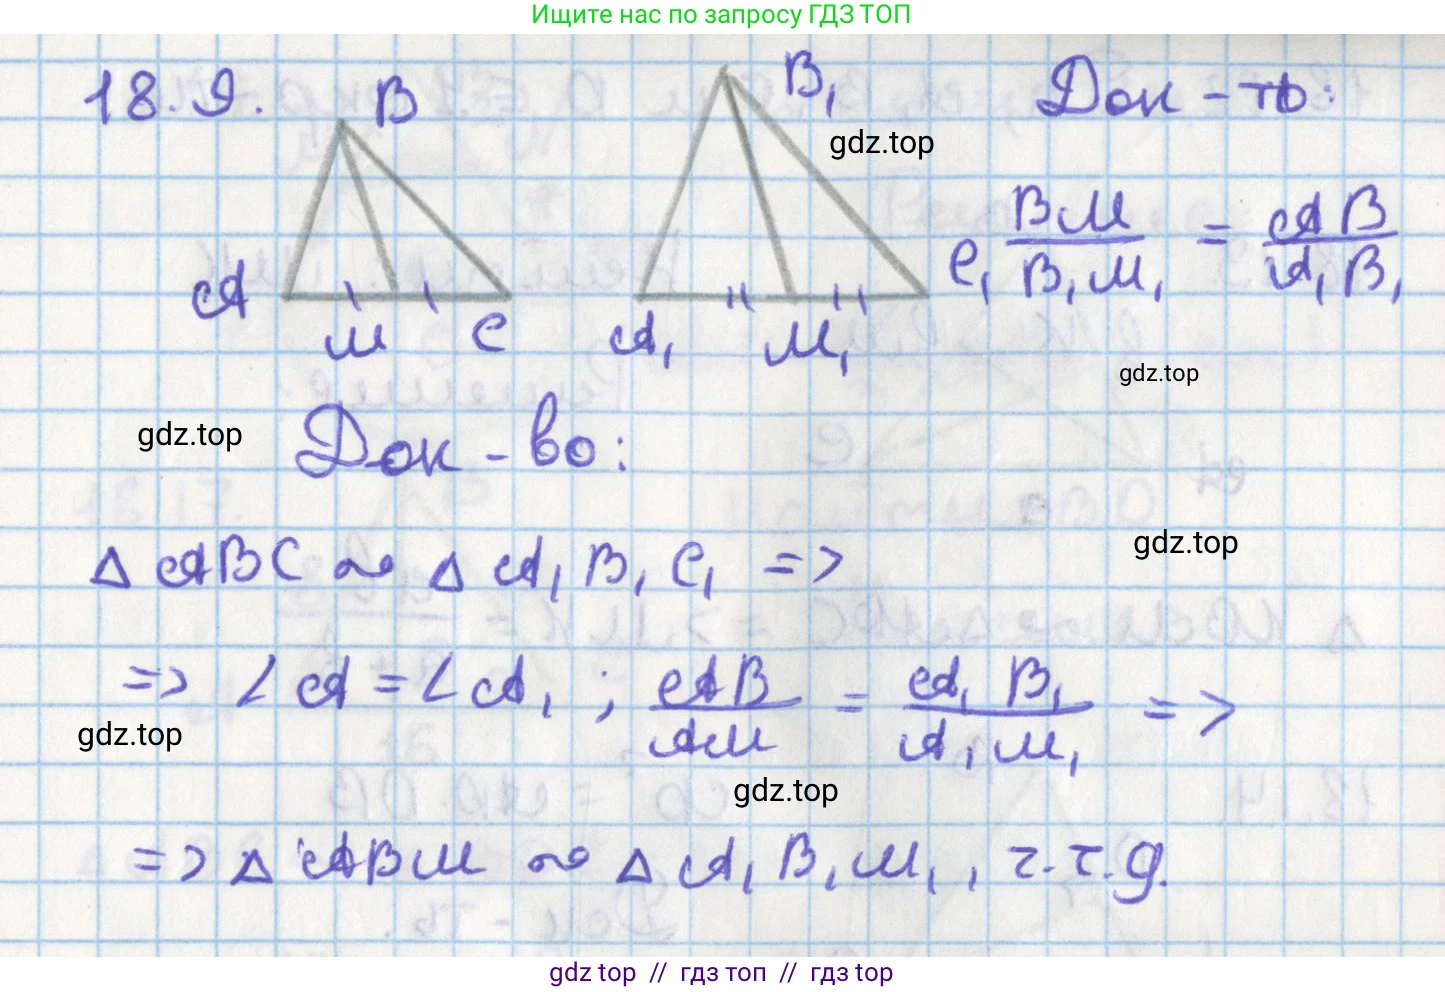 Ищите нас по запросу ГДЗ ТОП
18.9.
B
B₁
Док-ть:
gdz.top
BM/B₁M₁ = AB/A₁B₁
A
M
C
A₁
M₁
C₁
gdz.top
gdz.top
Док-во:
gdz.top
△ ABC ∾ △ A₁B₁C₁ =>
=> ∠A = ∠A₁; AB/AM = A₁B₁/A₁M₁ =>
gdz.top
gdz.top
=> △ ABM ∾ △ A₁B₁M₁, ч.т.д.
gdz top // гдз топ // гдз top